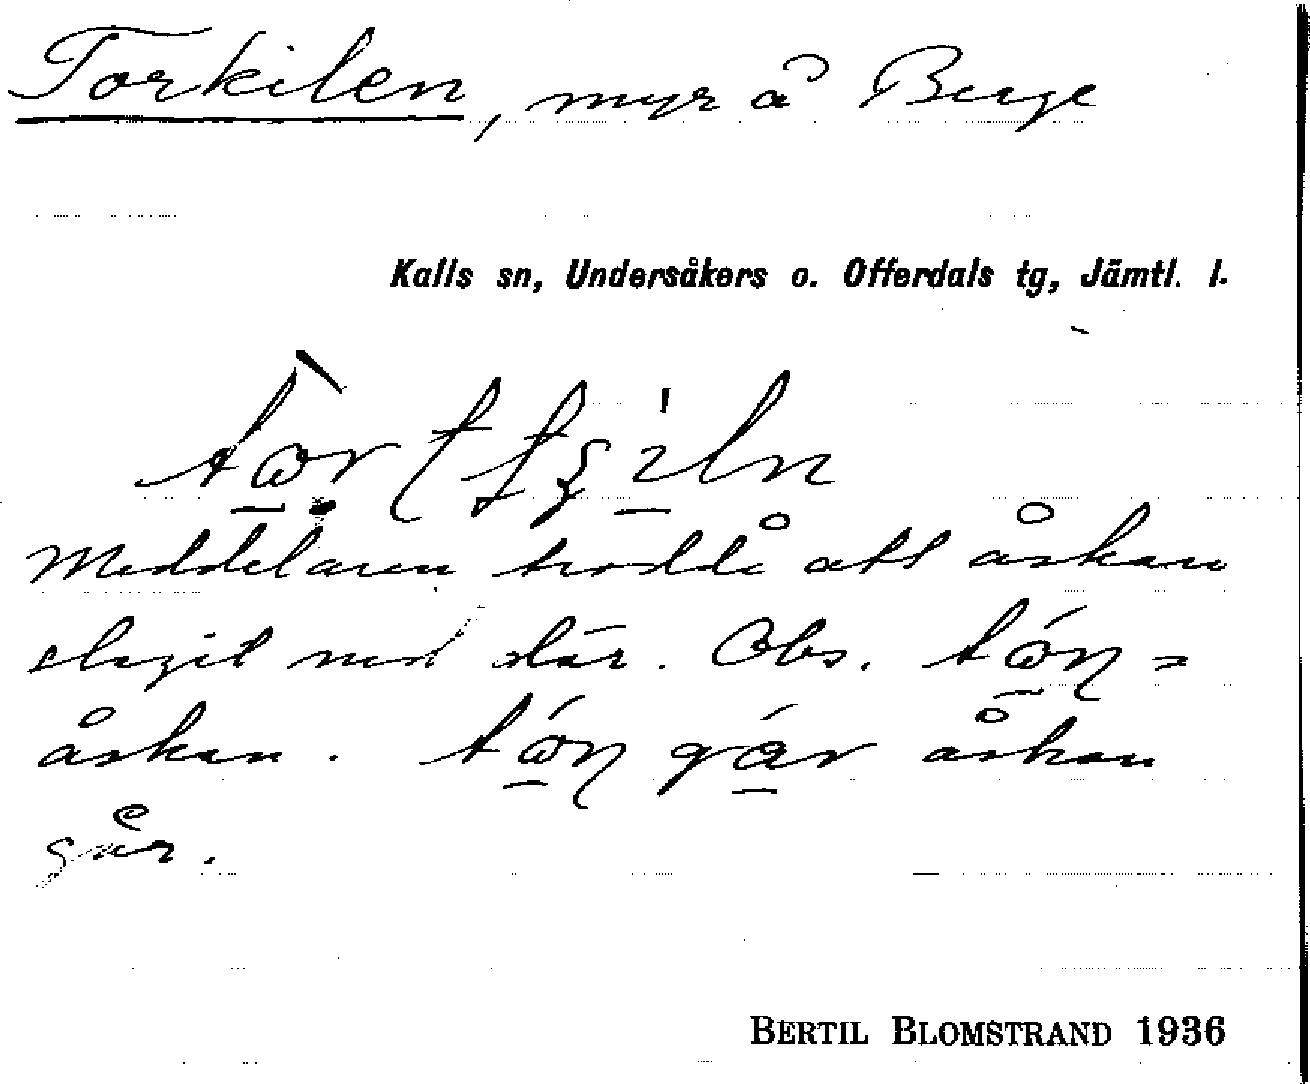 Torkilen, myr å Berge
Kalls sn, Undersåkers o. Offerdals tg, Jämtl. l.
Meddelaren trodde att åskan
slagit ned där. Obs. tώ̲n =
åskan. tώ̲n gά̲r åskan
går.
BERTIL BLOMSTRAND 1936